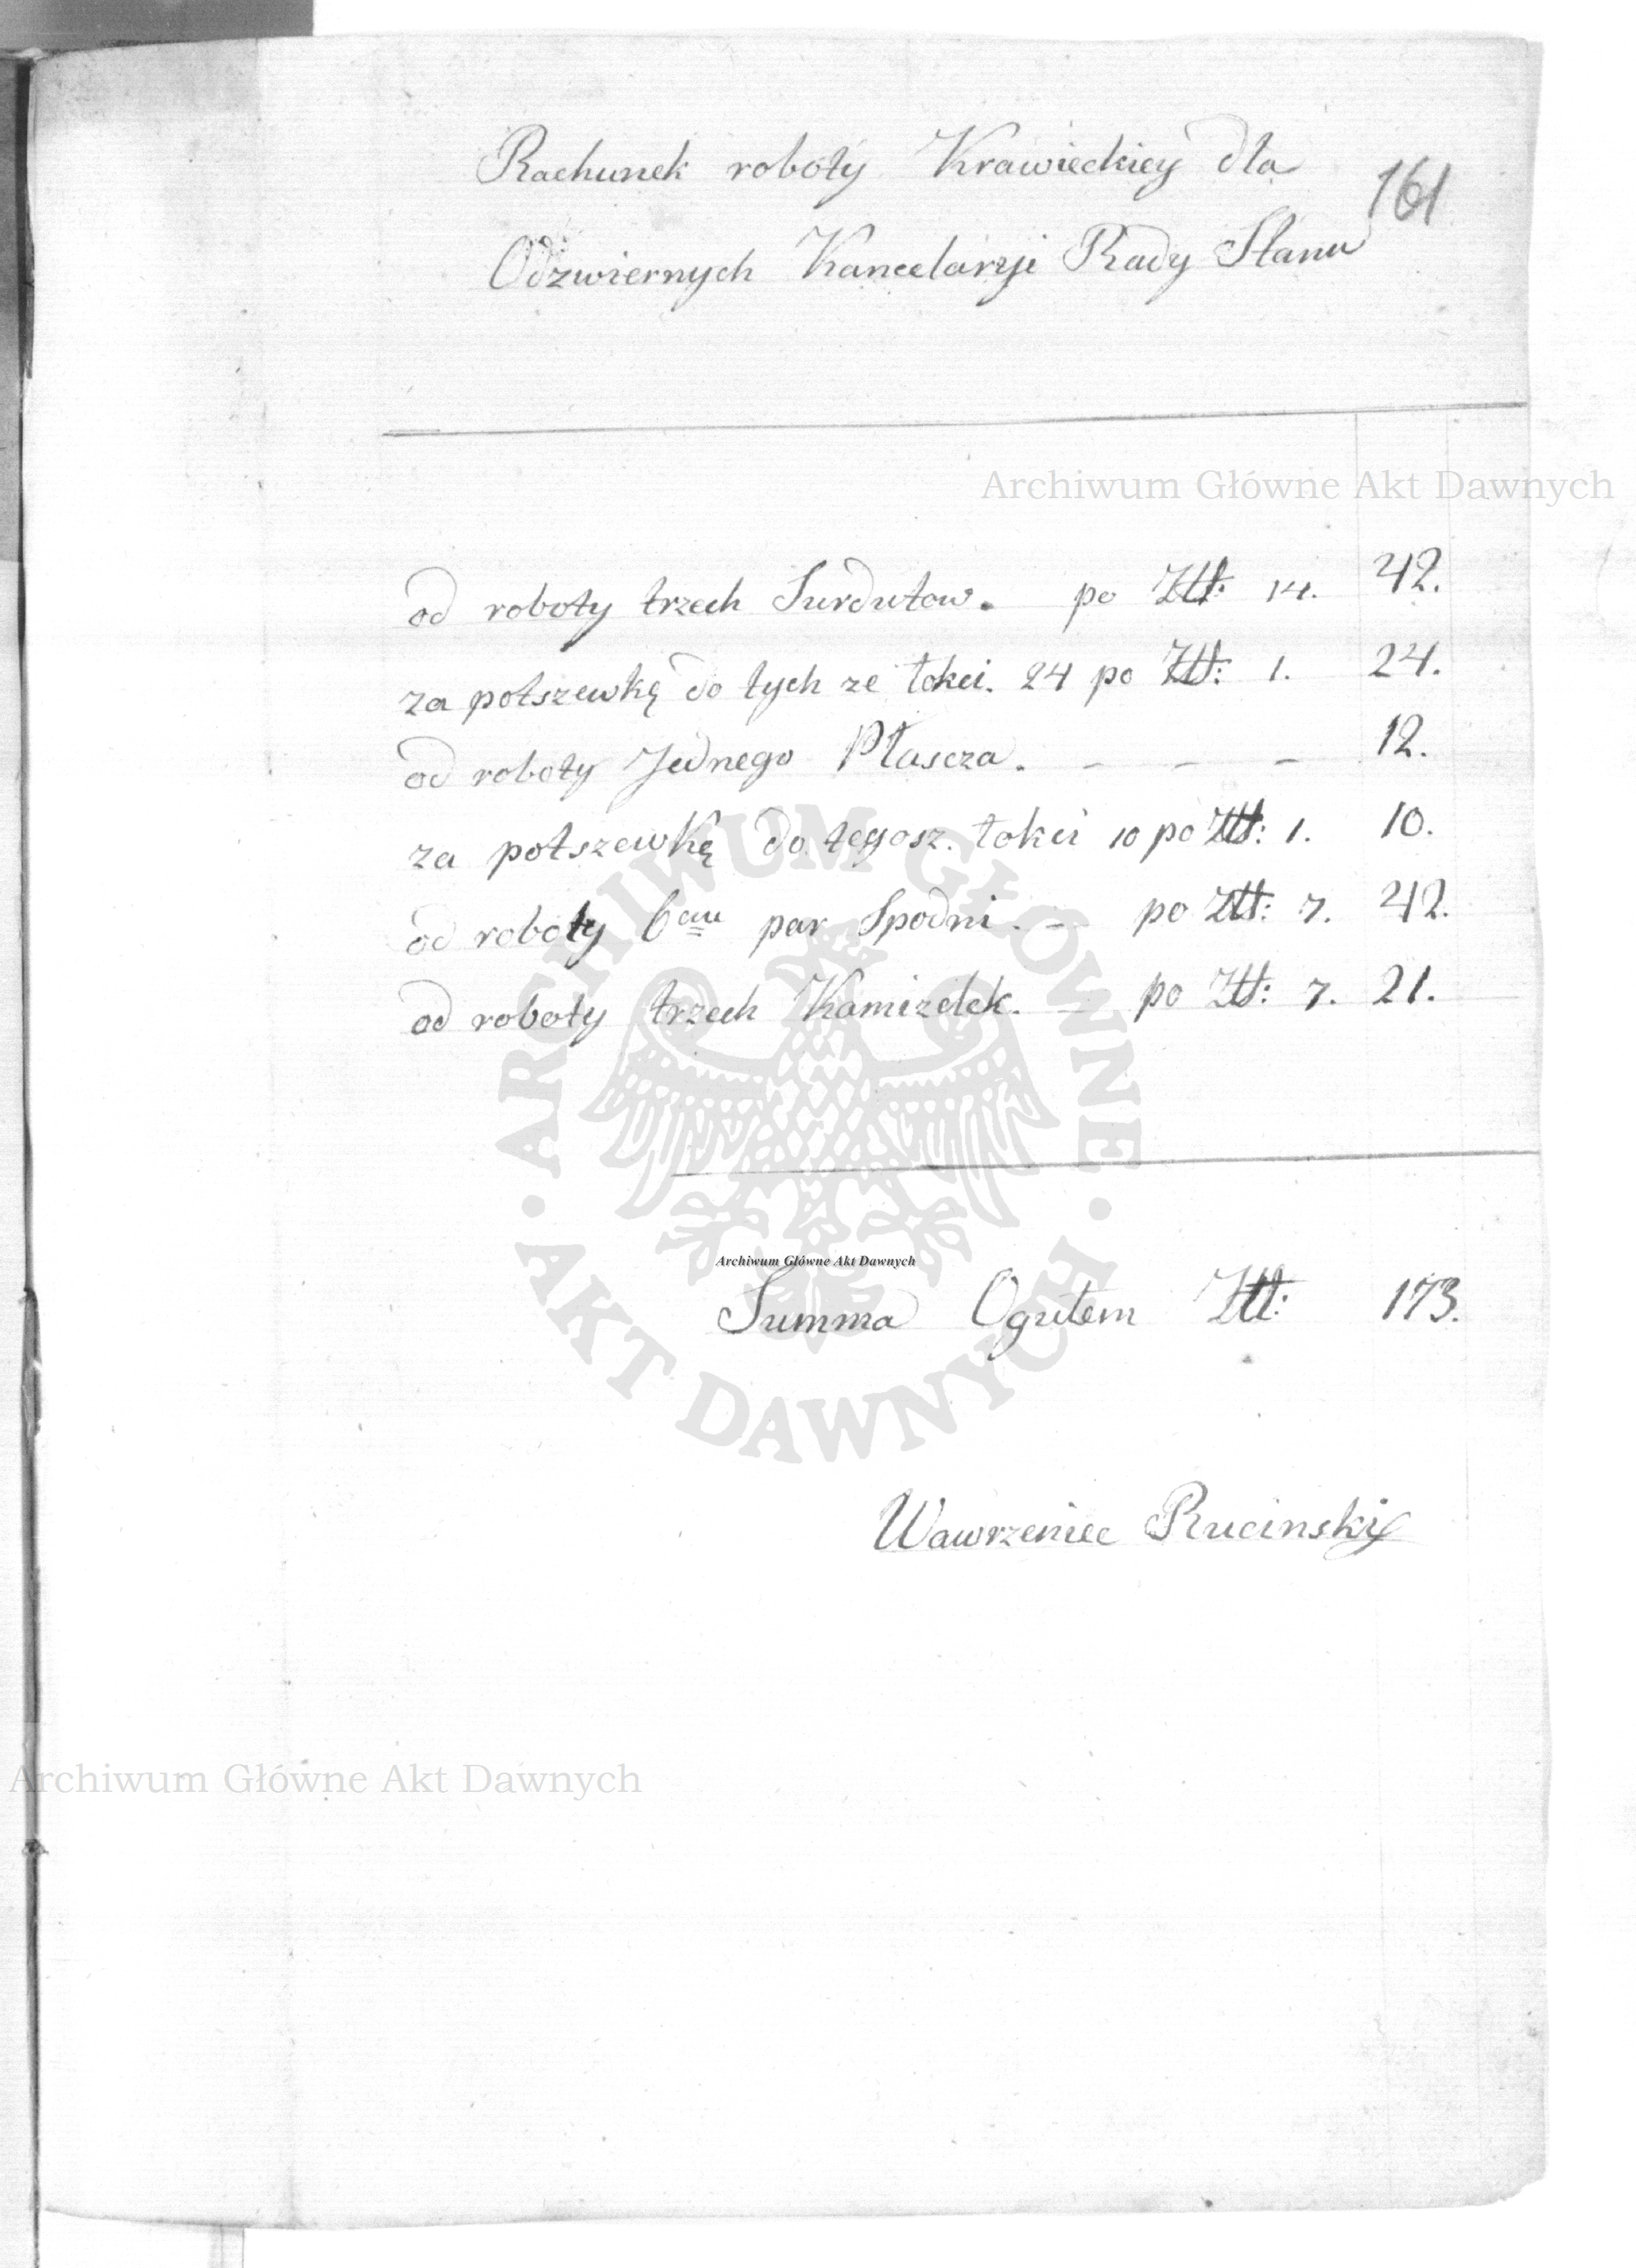 Rachunek roboty Krawieckiey dla
161
Odzwiernych Kancelaryi Rady Stanu
Archiwum Główne Akt Dawnych
od roboty trzech Surdutow. po Złł: 14. 42.
za potszewkę do tych ze łokci. 24 po Złł: 1. 24.
od roboty Jednego Płascza. - - - 12.
za potszewkę do tegosz. łokci 10 po Złł: 1. 10.
od roboty 6ciu par Spodni. - po Złł: 7. 42.
od roboty trzech Kamizelek. - po Złł: 7. 21.
ARCHIWUM GŁÓWNE · AKT DAWNYCH ·
Archiwum Główne Akt Dawnych
Summa Ogułem Złł: 173.
Wawrzeniec Rucinski
Archiwum Główne Akt Dawnych